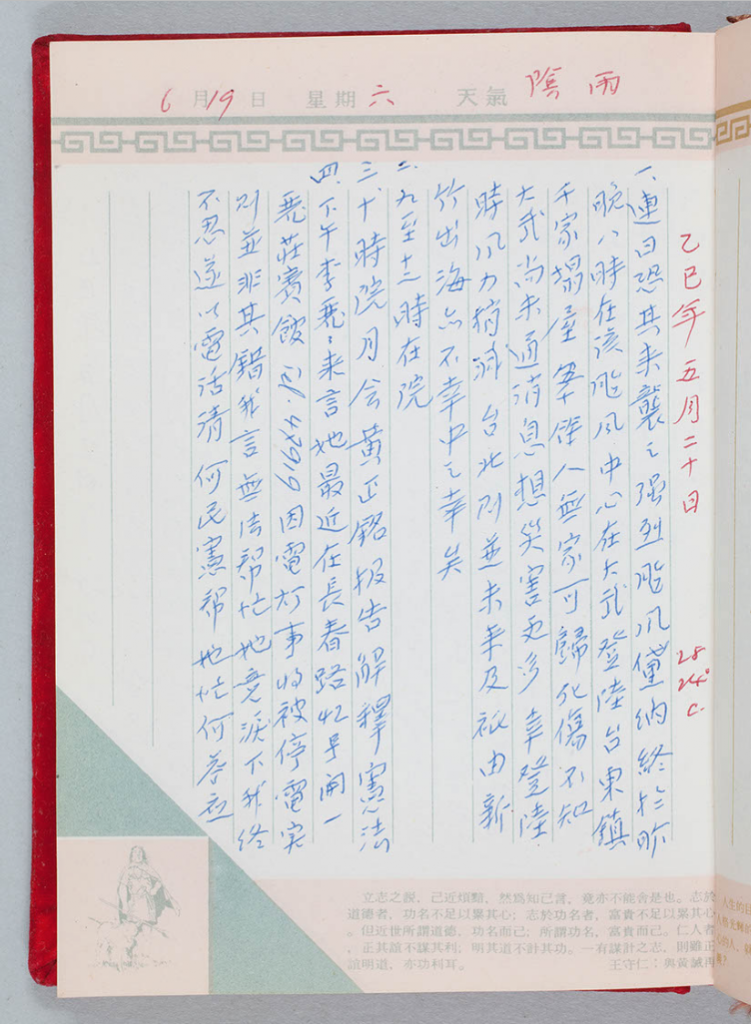 6月19日 星期六 天氣 陰雨
乙巳年五月二十日
28
24°
C.
一、連日恐其来襲之强烈颱风黛納終於昨
晚八時在該颱风中心在大武登陸台東鎮
千家塌屋 餘人無家可歸死傷不知
大武尚未通消息想災害更多幸登陸
時风力稍減 台北則並未年及祇由新
竹出海亦不幸中之幸矣
二、九至十二時在院
三、十時院月会黄正銘报告解釋憲法
四、下午李飛飛来言她最近在長春路42号開一
飛莊賓館 47619因電灯事将被停電实
則並非其錯我言無法帮忙她竟淚下我終
不忍遂以電活清何民憲帮她忙何荅应
立志之說，已近煩黷，然爲知己言，竟亦不能舍是也。志於
道德者，功名不足以累其心；志於功名者，富貴不足以累其心
。但近世所謂道德，功名而已；所謂功名，富貴而已。仁人者
，正其誼不謀其利，明其道不計其功。一有謀計之志，則雖正
誼明道，亦功利耳。 王守仁：與黃誠甫